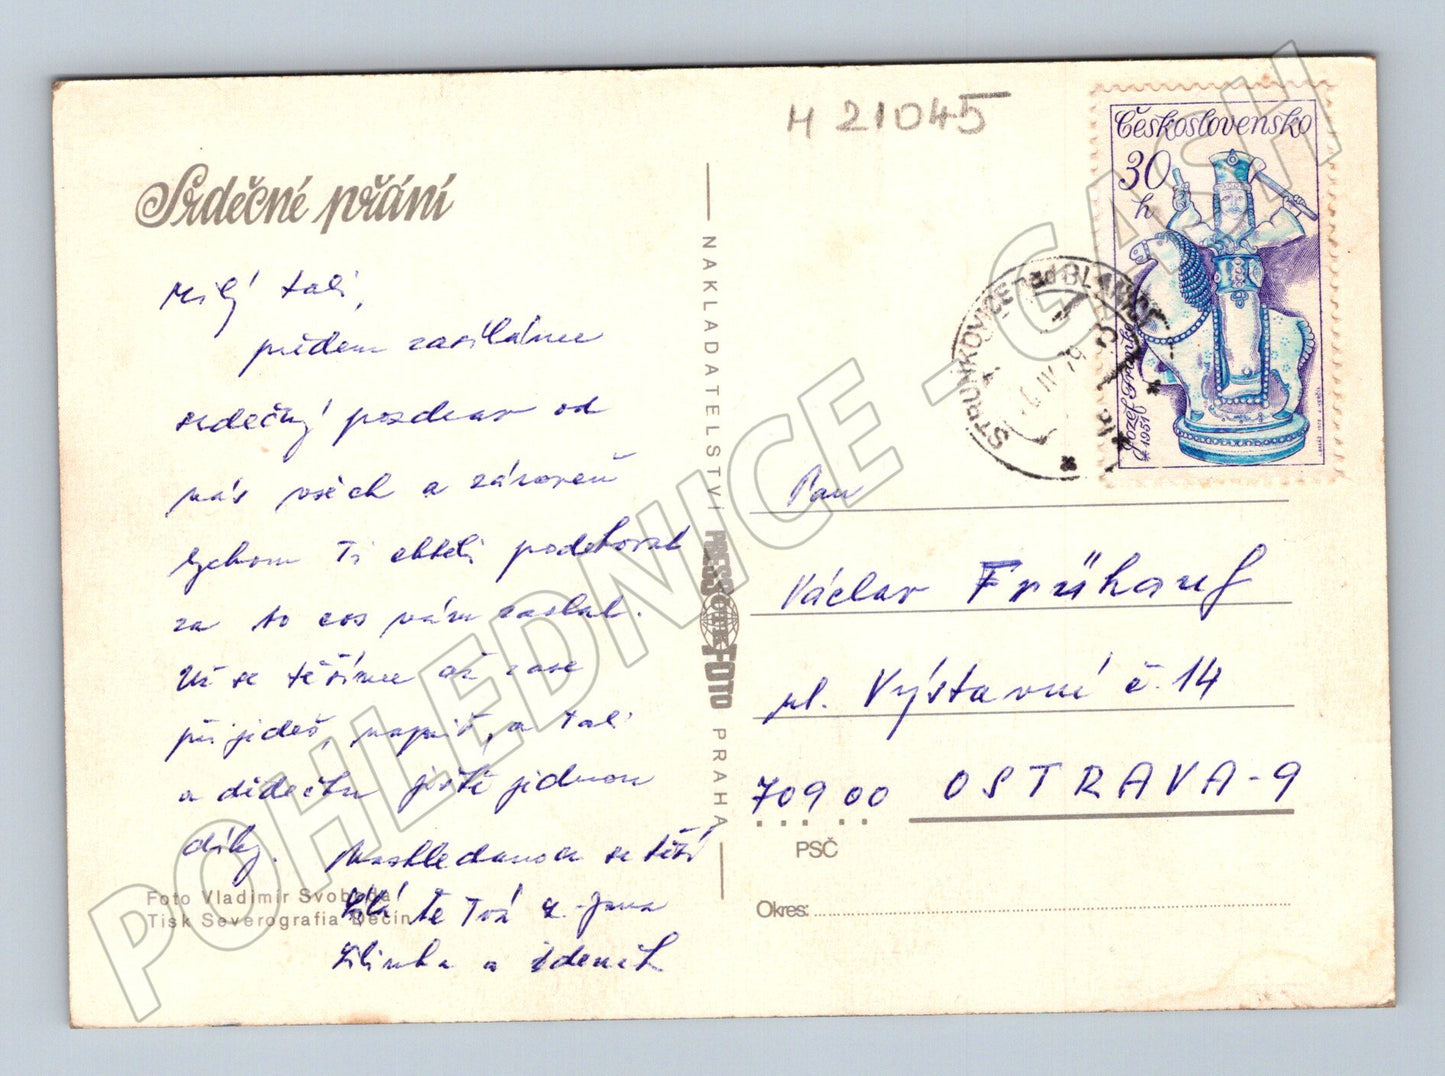 H 21045
Československo
30
h
Srdečné přání
STRUNKOVICE nad BLANICÍ
Milý tati,
předem zasíláme
srdečný pozdrav od
nás všech a zároveň
bychom Ti chtěli poděkovat
za to cos nám zaslal.
Už se těšíme až zase
přijedeš, napiš, a tati
a dědečku ještě jednou
díky. Nashledanou se těší
a Zdeněk
Foto Vladimír Svoboda
Tisk Severografia Děčín
NAKLADATELSTVÍ PRESSFOTO PRAHA
Pan
Václav Frühauf
ul. Výstavní č. 14
709 00 OSTRAVA-9
PSČ
Okres:
POHLEDNICE - GASH